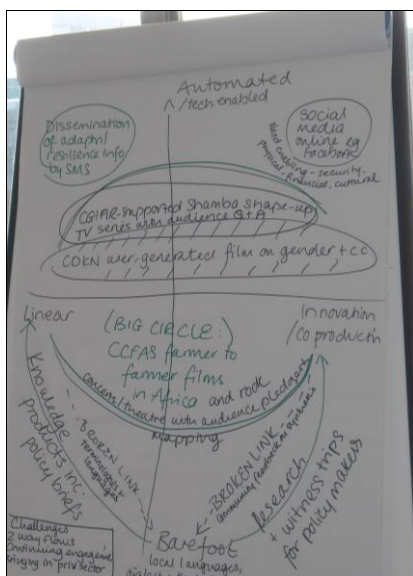 Automated
/tech enabled
Dissemination
of adaptn/
resilience info
by SMS
social
media
online eg
Facebook
Need enabling - security,
physical, financial, cultural
CGIAR-supported Shamba shape-up
TV series with audience Q+A
COKN user generated film on gender + CC
Linear
Innovation
/Co productn
(BIG CIRCLE:)
CCFAS farmer to
farmer films
in Africa and rock
concerts/theatre with audience pledges
mapping
Knowledge
products inc.
policy briefs
BROKEN LINK -
languages
BROKEN LINK -
Research
+ witness trips
for policy makers
Barefoot
local languages,
Challenges
2 way flows
Continuing engageme
Bringing in priv sector